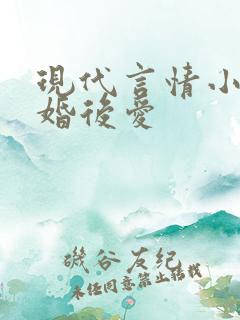 現代言情小
婚後愛
磯谷友紀
未经同意禁止转载